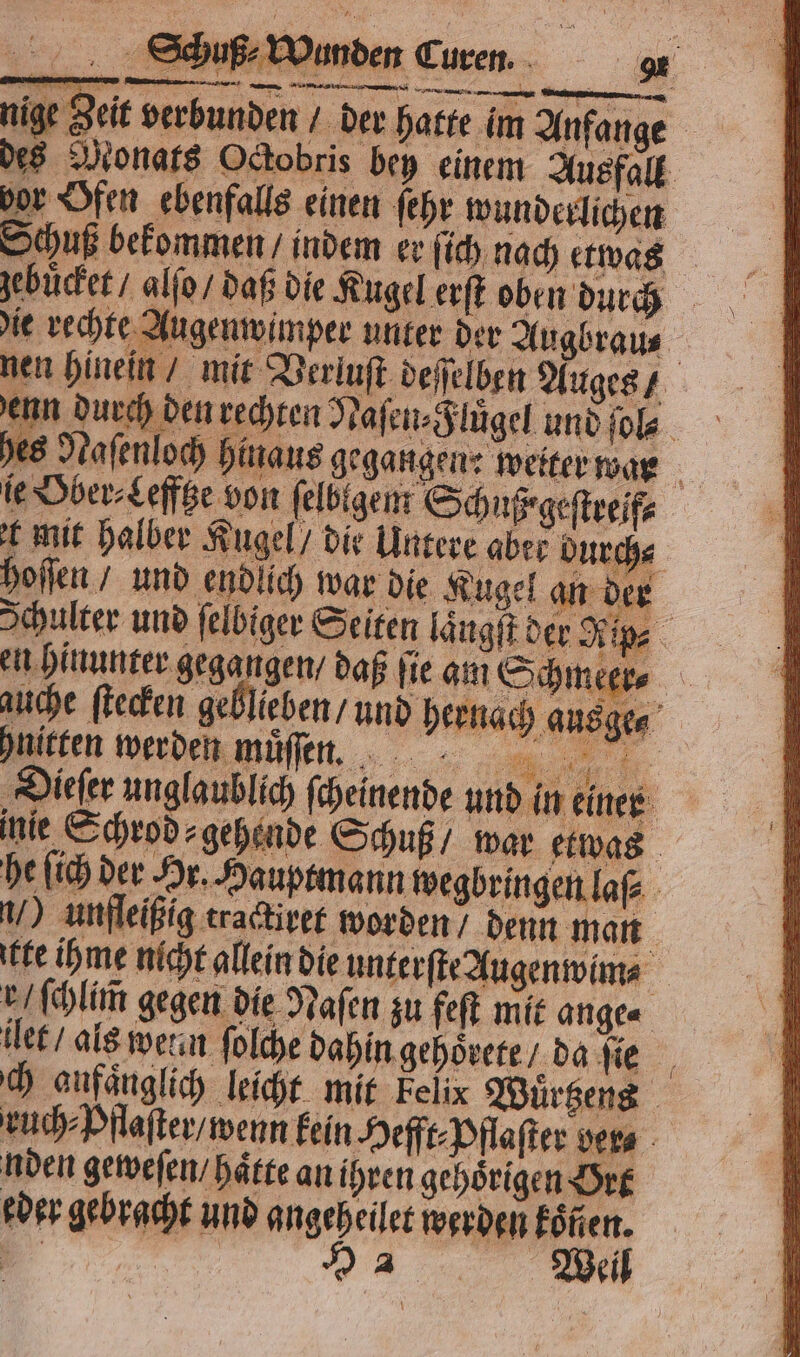 Schuß⸗Wunden Curen. 91
nige Zeit verbunden / der hatte im Anfange
des Monats Octobris bey einem Ausfall
vor Ofen ebenfalls einen ſehr wunderlichen
Schuß bekommen / indem er ſich nach etwas
gebuͤcket / alſo / daß die Kugel erſt oben durch
die rechte Augenwimper unter der Augbrau⸗
nen hinein / mit Verluſt deſſelben Auges /
denn durch den rechten Naſen⸗Fluͤgel und ſol⸗
hes Naſenloch hinaus gegangen: weiter war
ie Ober⸗Lefftze von ſelbigem Schuß geſtreif⸗
t mit halber Kugel / die Untere aber durch⸗
hoſſen / und endlich war die Kugel an der
Schulter und ſelbiger Seiten laͤngſt der Rip⸗
en hinunter gegangen / daß ſie am Schmeer⸗
auche ſtecken geblieben / und hernach ausge⸗
hnitten werden muͤſſen.
Dieſer unglaublich ſcheinende und in einer
inie Schrod⸗gehende Schuß / war etwas
he ſich der Hr. Hauptmann wegbringen laſ⸗
n /) unfleißig tractiret worden / denn man
tte ihme nicht allein die unterſte Augenwim⸗
r / ſchlim̃ gegen die Naſen zu feſt mit ange⸗
ilet / als wenn ſolche dahin gehoͤrete / da ſie
ch anfaͤnglich leicht mit Felix Wuͤrtzens
ruch⸗Pflaſter / wenn kein Hefft⸗Pflaſter ver⸗
nden geweſen / haͤtte an ihren gehoͤrigen Ort
eder gebracht und angeheilet werden koͤñen.
H 2 Weil